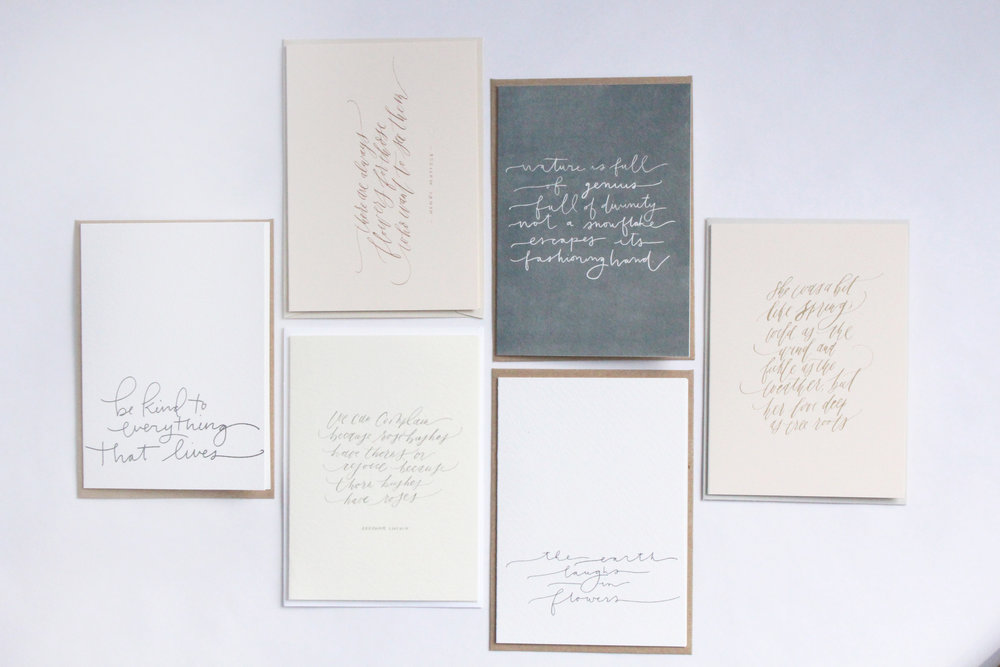 there are always
flowers for those
who want to see them
- HENRI MATISSE -
nature is full
of genius
full of divinity
not a snowflake
escapes its
fashioning hand
be kind to
everything
that lives
we can complain
because rose bushes
have thorns or
rejoice because
thorn bushes
have roses
ABRAHAM LINCOLN
the earth
laughs
in
flowers
She was a bit
like Spring,
wild as the
wind and
fickle as the
weather, but
her love deep
as tree roots